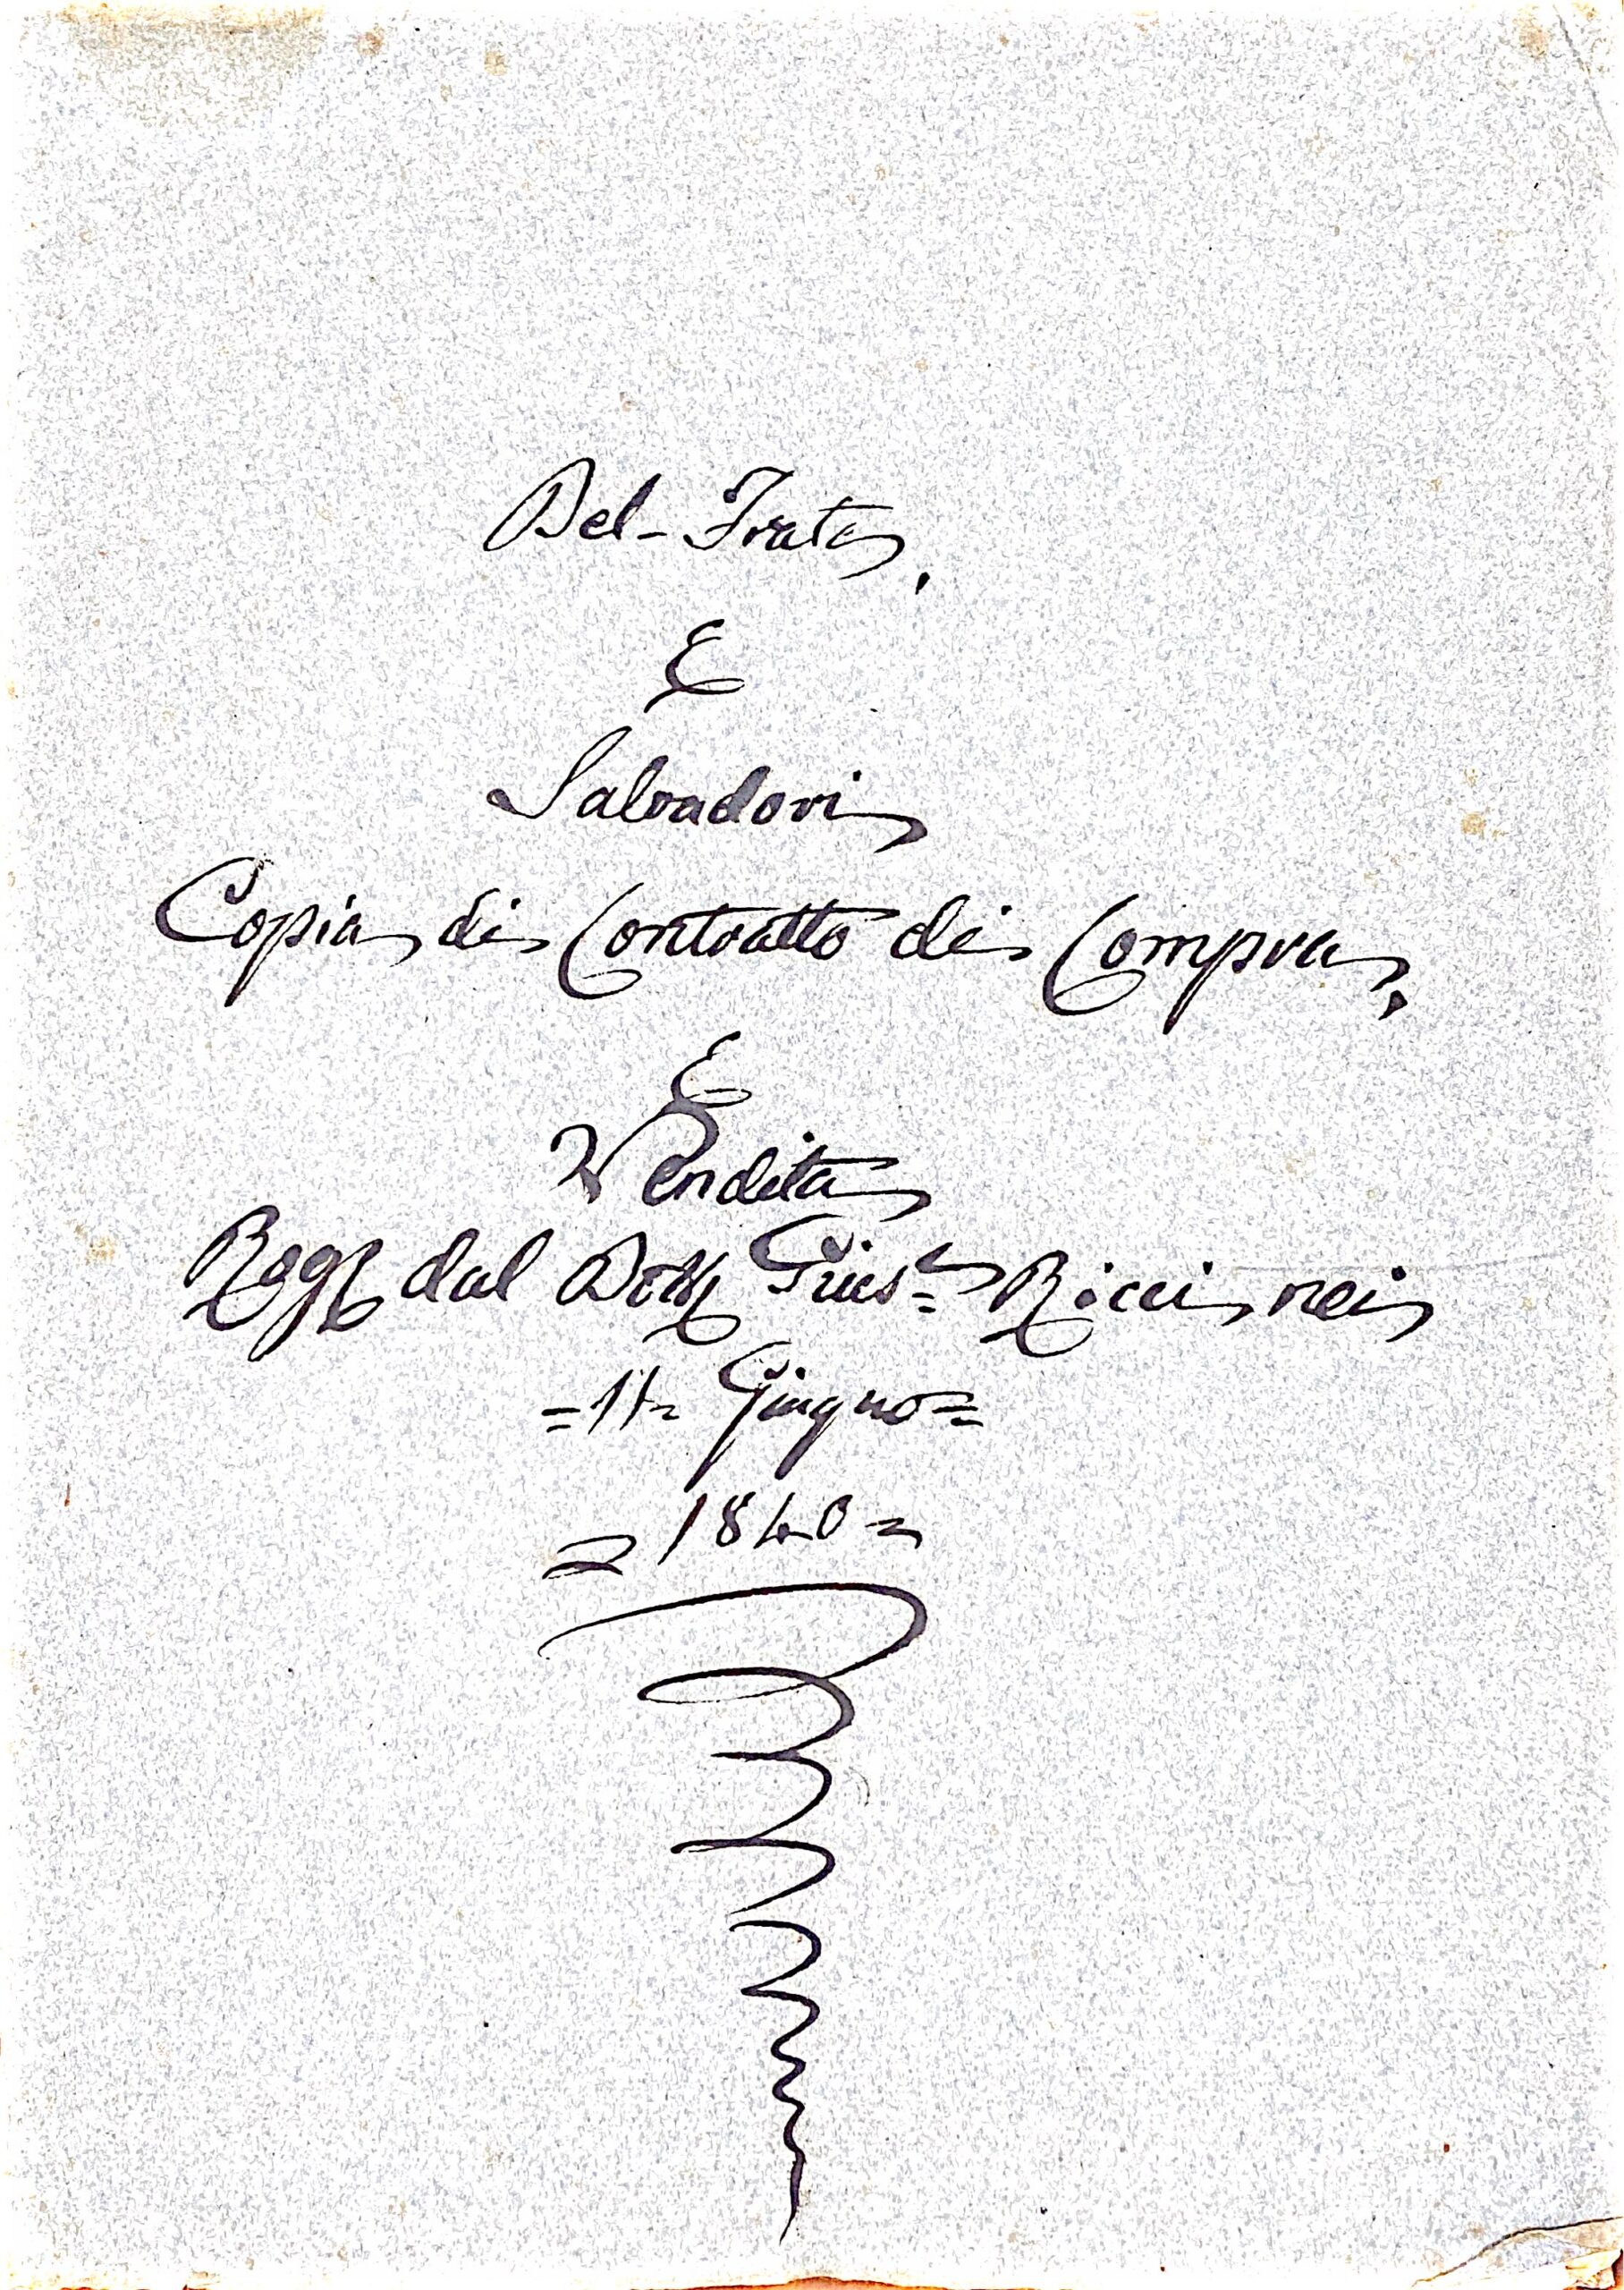 Del-Frate
E
Salvadori
Copia di Contratto di Compra
E
Vendita
Rog. dal Dott. Gius.e Ricci nei
=11= Giugno=
=1840=